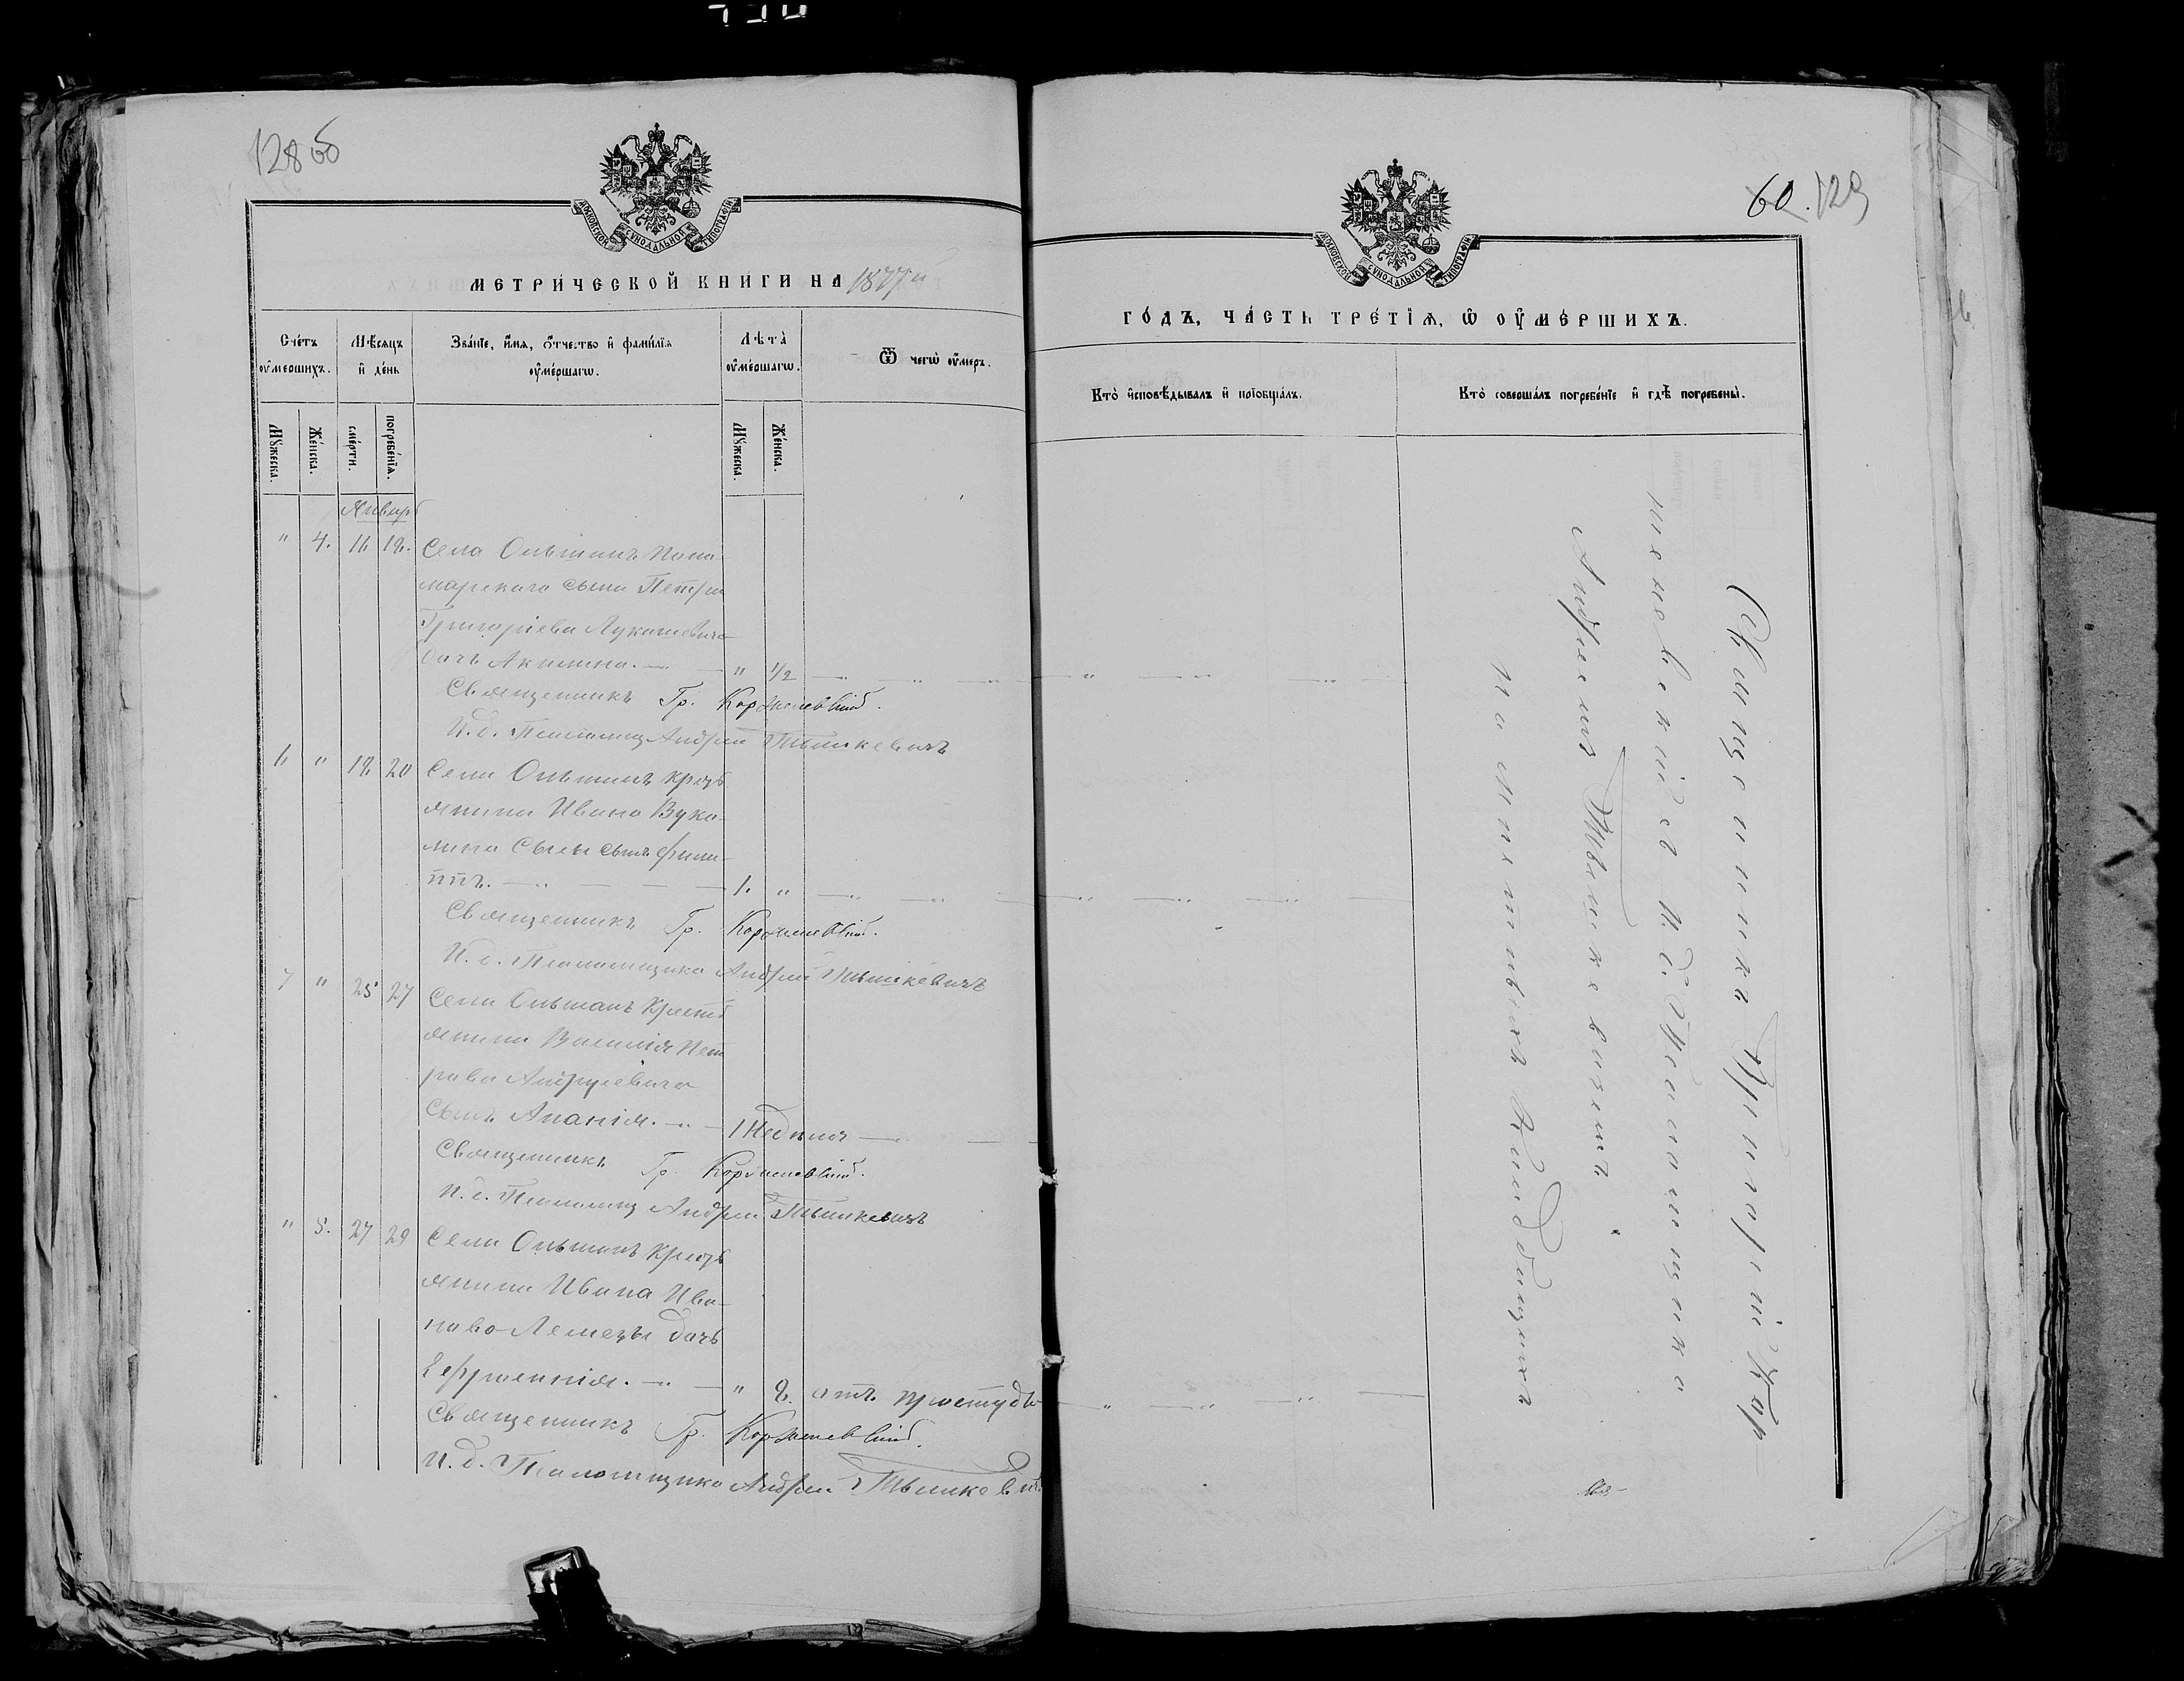 128 об
МОСКОВСКОЙ СУНОДАЛЬНОЙ ТИПОГРАФІИ
МЕТРИЧЕСКОЙ КНИГИ НА 1877 й
Сче́тъ оу҆ме́ршихъ.
Мѣ́сяцъ и҆ де́нь
Зва́нїе, и҆́мя, ѻ҆́тчество и҆ фами́лїя оу҆ме́ршагѡ.
Лѣта̀ оу҆ме́ршагѡ.
Ѿ чегѡ̀ оу҆́меръ.
Мꙋ́жеска.
Же́нска.
сме́рти.
погребе́нїя.
Мꙋ́жеска.
Же́нска.
Январь
" 4. 16 18. Села Ольшанъ Поно-
марскаго сына Петра
Григоріева Лукашевича
дочь Акилина. " 1/2
Священникъ Гр. Корженевскій.
И. д. Псаломщ Андрей Тышкевичъ
6 " 18 20 Села Ольшанъ Кресть
янина Ивана Вуко-
лина сынъ Фили-
ппъ. 1. "
Священникъ Гр. Корженевскій.
И. д. Псаломщика Андрей Тышкевичъ
7 " 25 27 Села Ольшанъ Кресть
янина Василія Пет
рова
сынъ Ананія. 1 Недѣля
Священникъ Гр. Корженевскій.
И. д. Псаломщ Андрей Тышкевичъ
" 5. 27 29 Села Ольшанъ Кресть
янина Ивана Ива-
нова дочь
Ефросинія. " 8. отъ простуды
Священникъ Гр. Корженевскій.
И. д. Псаломщика Андрей Тышкевичъ
60. 129
МОСКОВСКОЙ СУНОДАЛЬНОЙ ТИПОГРАФІИ
ГО́ДЪ, ЧА́СТЬ ТРЕ́ТІЯ, Ѡ҆ ОУ҆МЕ́РШИХЪ.
Кто̀ и҆сповѣ́дывалъ и҆ прїѡбща́лъ.
Кто̀ соверша́лъ погребе́нїе и҆ гдѣ̀ погребены̀.
Священникъ Григорій Кор-
женевскій съ И. д. Псаломщика
Андреемъ Тышкевичемъ
на кладбищахъ